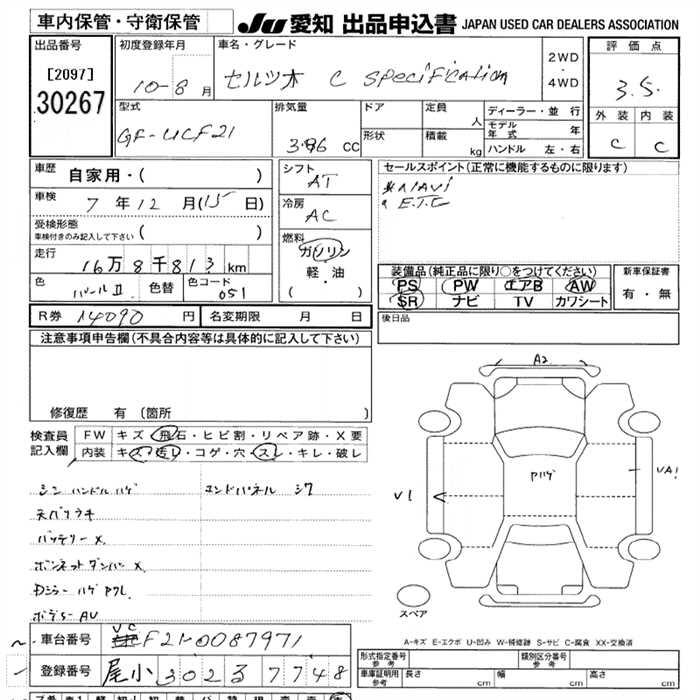 車内保管・守衛保管
JU 愛知 出品申込書 JAPAN USED CAR DEALERS ASSOCIATION
出品番号
[2097]
30267
初度登録年月
10-8月
車名・グレード
セルシオ C specification
2WD
・
4WD
評価点
3.5
外装 内装
C C
型式
GF-UCF21
排気量
3.96 CC
ドア
形状
定員
人
積載
kg
ディーラー・並行
モデル年式 年
ハンドル 左・右
車歴 自家用・( )
車検 7年12月(15日)
受検形態
車検付きのみ記入して下さい ( )
走行 16万8千813km
色 パールII 色替 色コード 051
シフト
AT
冷房
AC
燃料
ガソリン
軽・油
( )
セールスポイント(正常に機能するものに限ります)
E.T.C
装備品(純正品に限り○をつけてください)
PS PW エアB AW
SR ナビ TV カワシート
新車保証書
有・無
R券 14090円 名変期限 月 日
後日品
注意事項申告欄(不具合内容等は具体的に記入して下さい)
修復歴 有(箇所 )
検査員記入欄
FW キズ・飛石・ヒビ割・リペア跡・X要
内装 キズ・汚レ・コゲ・穴・スレ・キレ・破レ
シンハンドルハゲ エンドパネル
バッテリーX
ボンネットダンパーX
A2
Aハゲ
V1
VA1
スペア
A-キズ E-エクボ U-凹み W-補修跡 S-サビ C-腐食 XX-交換済
車台番号 UCF21-0087971
登録番号 尾小 302 る 7748
形式指定番号
参考
類別区分番号
参考
車庫証明用
参考
長さ cm 幅 cm 高さ cm